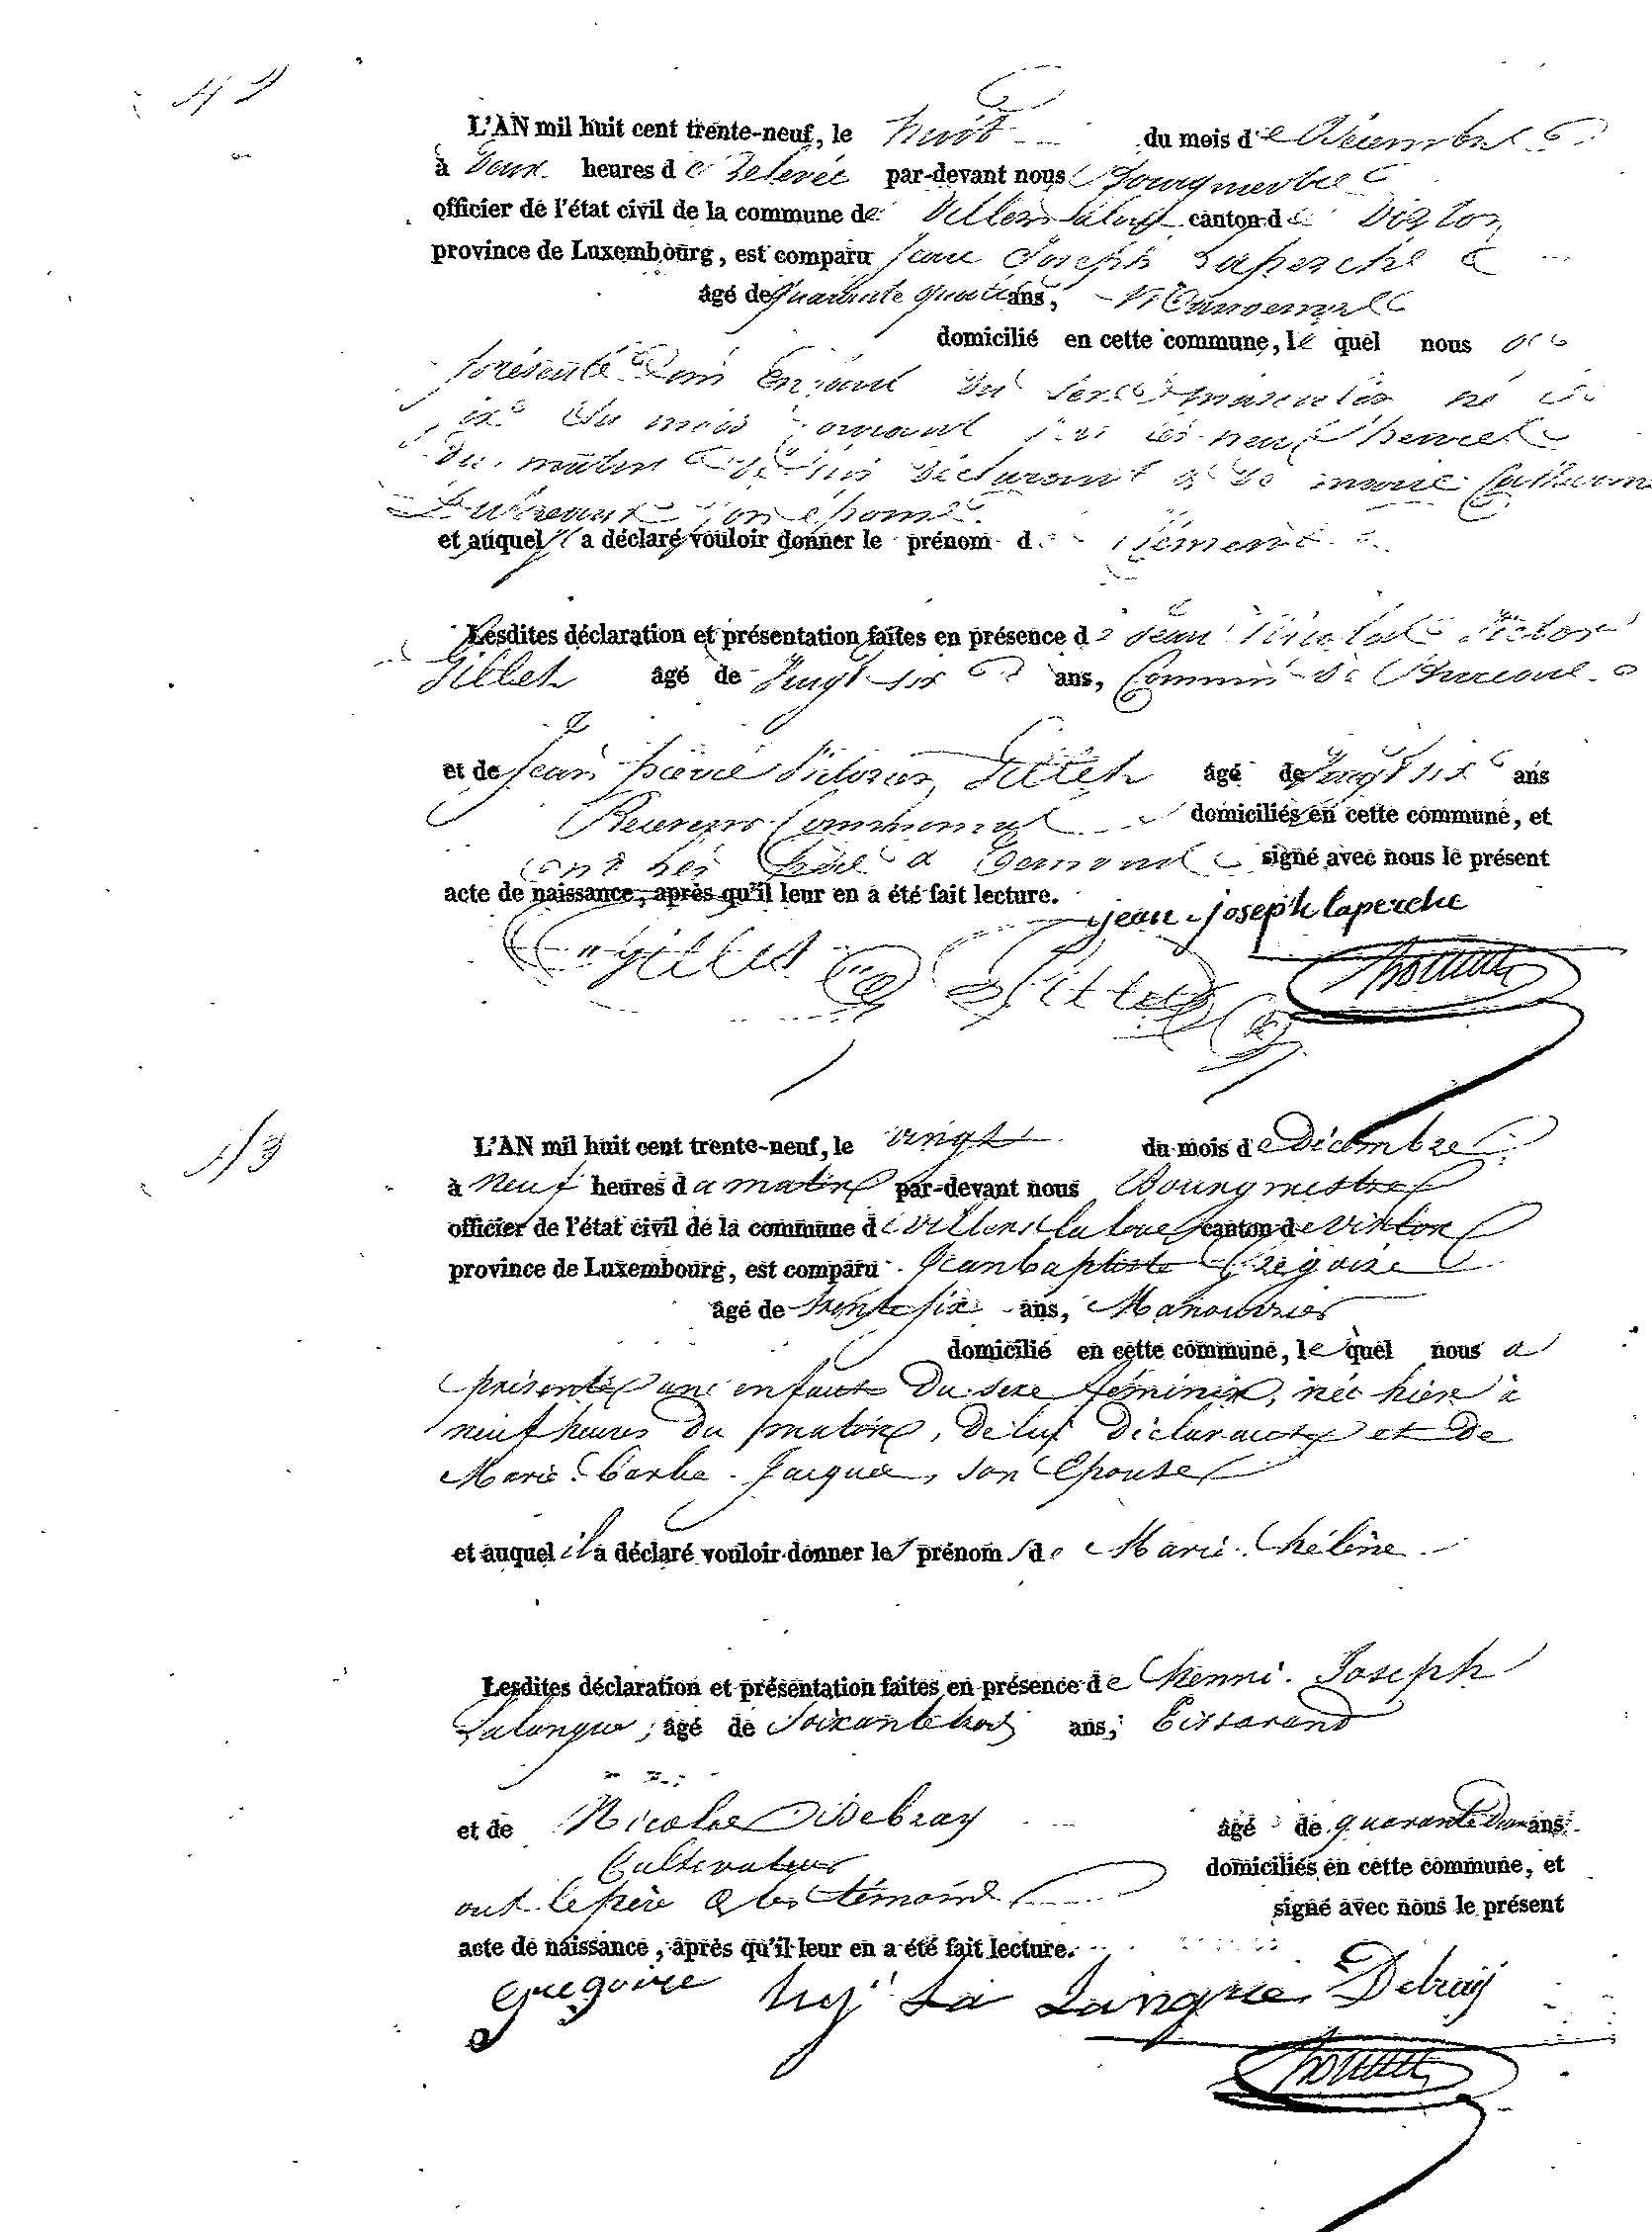 42
L'AN mil huit cent trente-neuf, le huit du mois de Décembre
à deux heures de relevée par-devant nous Bourgmestre
officier de l'état civil de la commune de Villers la loue canton de Virton
province de Luxembourg, est comparu Jean Joseph Laperche
âgé de quarante quatre ans,
domicilié en cette commune, le quel nous a
présenté un enfant du sexe masculin né
du mois courant neuf heures
du matin de lui déclarant & de marie Catherine
son épouse
et auquel il a déclaré vouloir donner le prénom de Clément
Lesdites déclaration et présentation faites en présence de Jean Nicolas Victor
Gillet âgé de Vingt six ans, Commis de Bureau
et de Jean pierre Victorin Gillet âgé de Vingt six ans
Receveur Communal domiciliés en cette commune, et
ont les père & témoins signé avec nous le présent
acte de naissance, après qu'il leur en a été fait lecture.
jean joseph laperche
Gillet Gillet
43
L'AN mil huit cent trente-neuf, le vingt du mois de Décembre
à neuf heures du matin par-devant nous Bourgmestre
officier de l'état civil de la commune de villers la loue canton de virton
province de Luxembourg, est comparu Jean baptiste Grégoire
âgé de trente six ans, Manouvrier
domicilié en cette commune, le quel nous a
présenté une enfant du sexe féminin, née hier à
neuf heures du matin, de lui déclarant et de
Marie Barbe Jacques, son Epouse
et auquel il a déclaré vouloir donner les prénoms de Marie hélène
Lesdites déclaration et présentation faites en présence de henri Joseph
Lalangue, âgé de soixante trois ans, Tisserand
et de Nicolas Debray âgé de quarante deux ans
Cultivateur domiciliés en cette commune, et
ont le père & les témoins signé avec nous le présent
acte de naissance, après qu'il leur en a été fait lecture.
gregoire hrj La Langue Debray